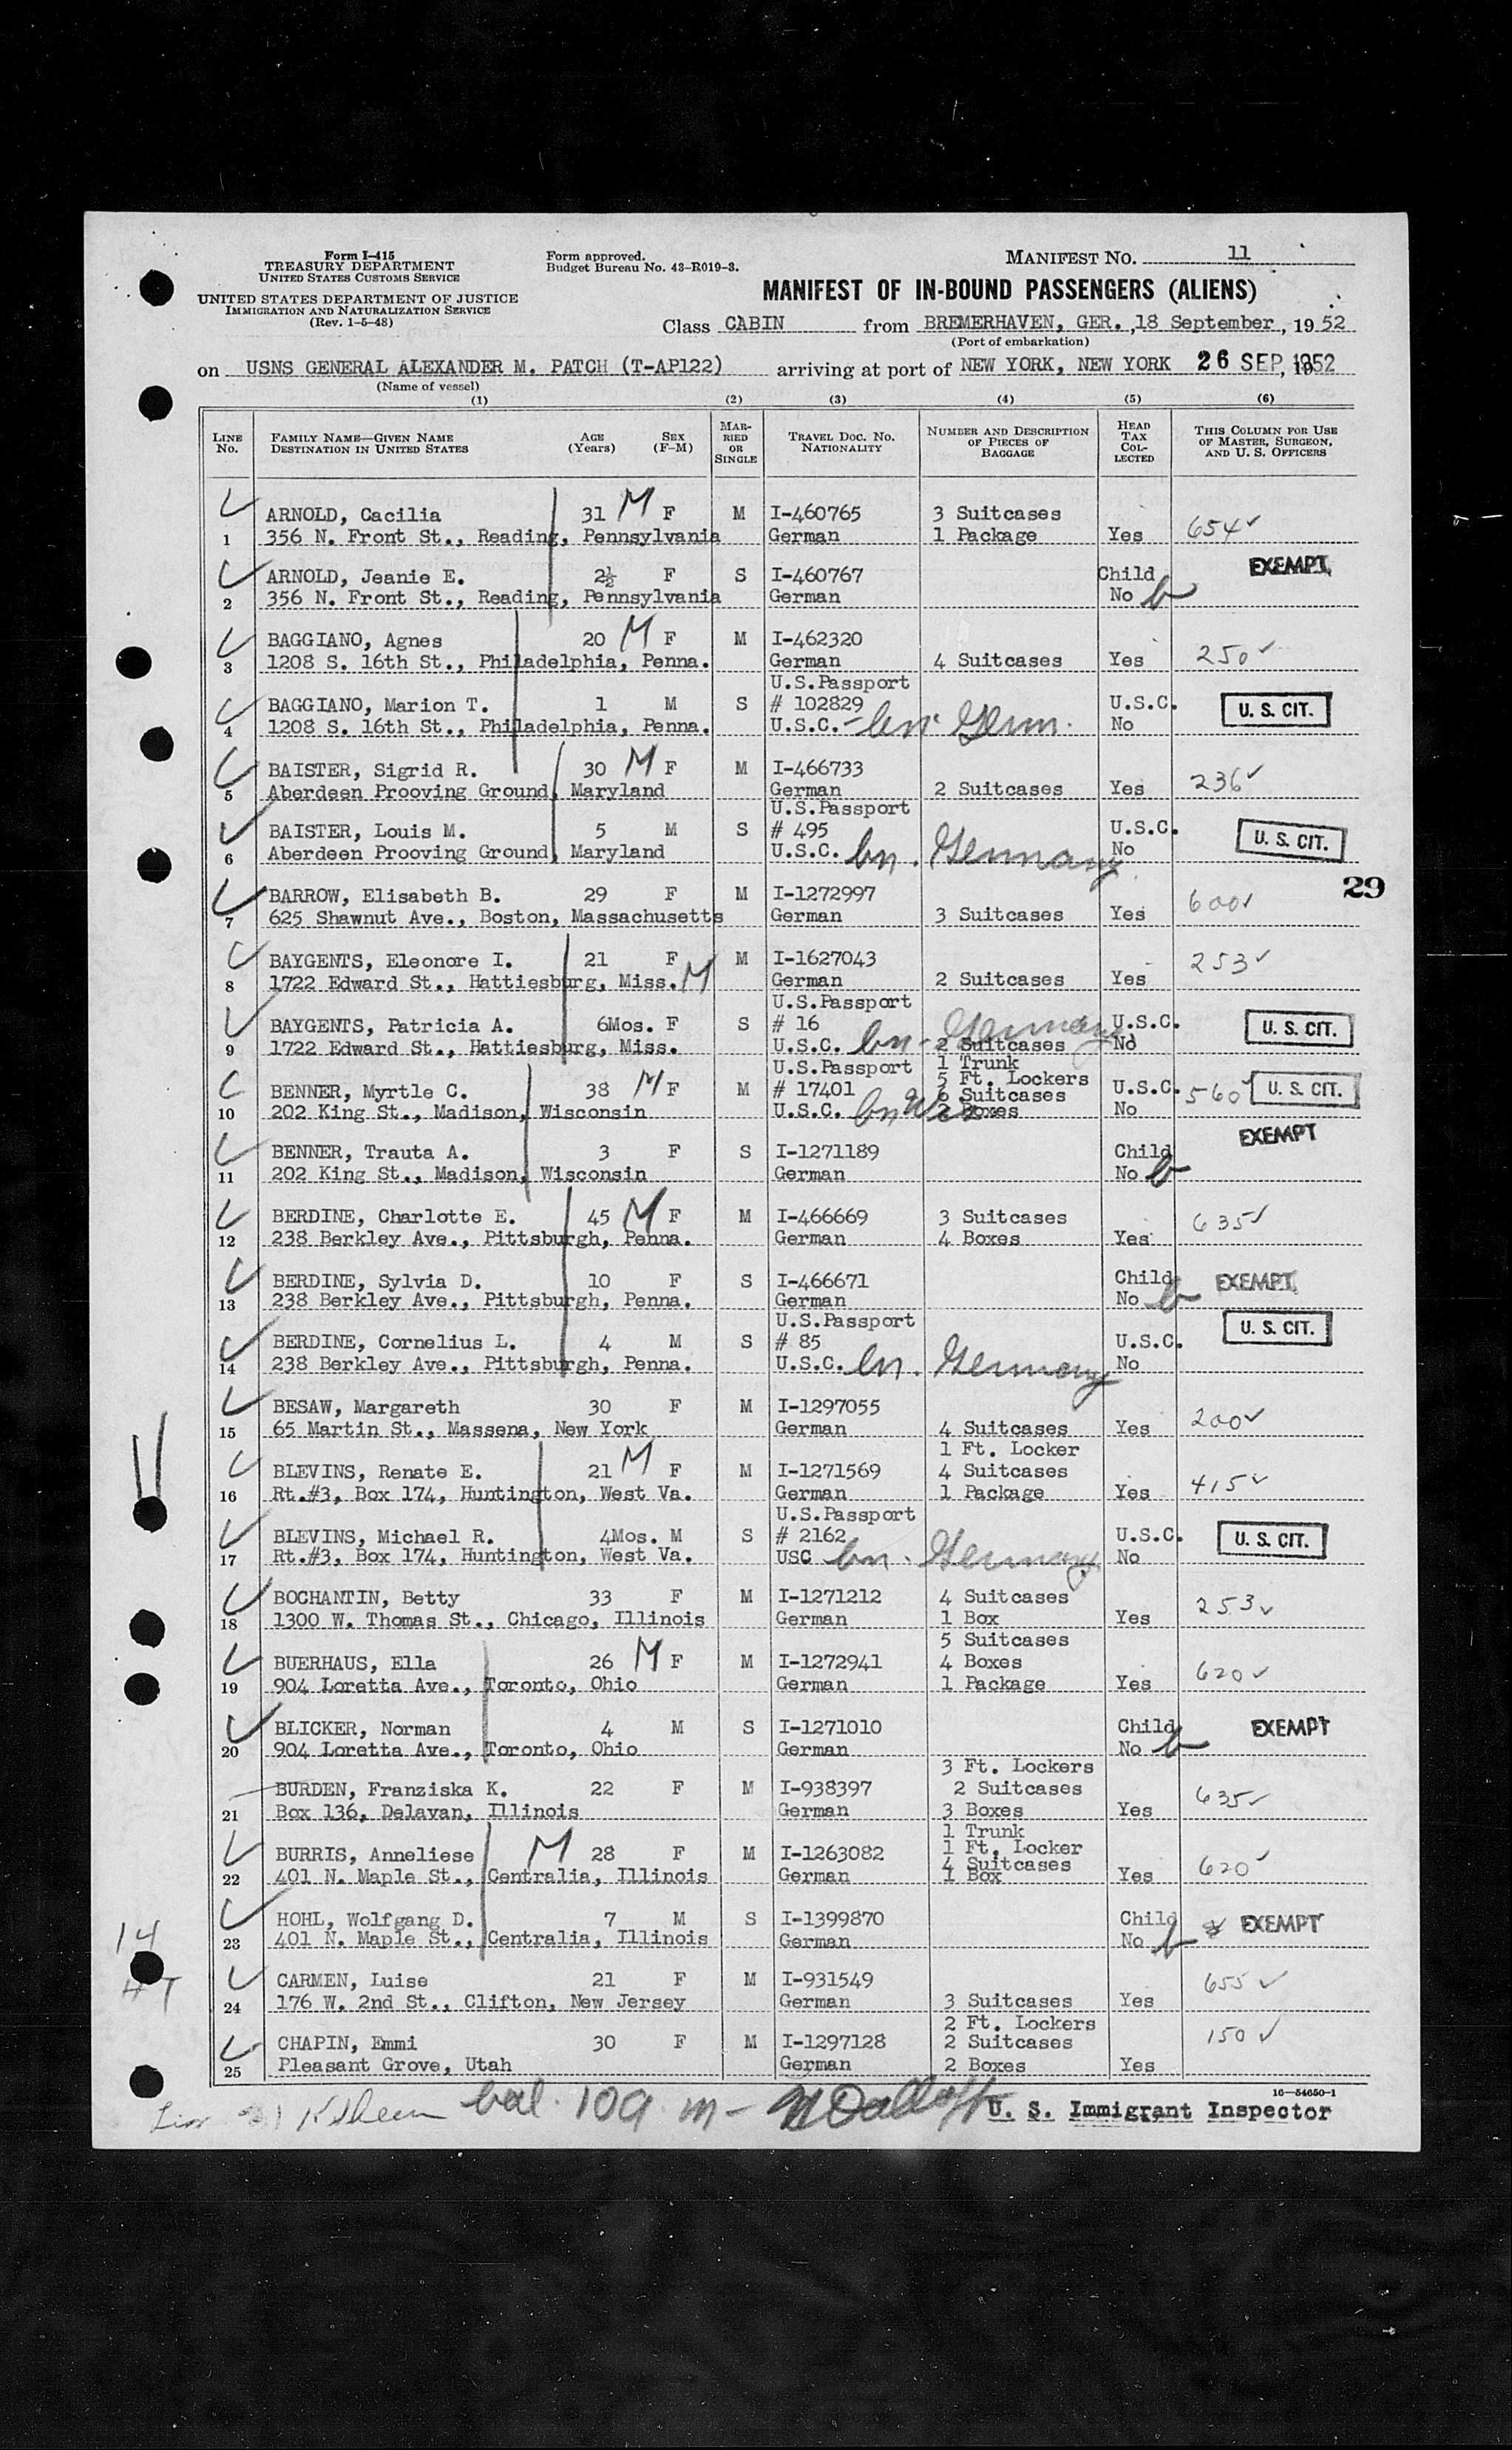 Form I-415
TREASURY DEPARTMENT
UNITED STATES CUSTOMS SERVICE
UNITED STATES DEPARTMENT OF JUSTICE
IMMIGRATION AND NATURALIZATION SERVICE
(Rev. 1-5-48)
Form approved.
Budget Bureau No. 43-R019-3.
MANIFEST NO. 11
MANIFEST OF IN-BOUND PASSENGERS (ALIENS)
Class CABIN from BREMERHAVEN, GER., 18 September, 1952
(Port of embarkation)
on USNS GENERAL ALEXANDER M. PATCH (T-AP122) arriving at port of NEW YORK, NEW YORK 26 SEP 1952
(Name of vessel)
(1) (2) (3) (4) (5) (6)
LINE No. FAMILY NAME—GIVEN NAME DESTINATION IN UNITED STATES AGE (Years) SEX (F-M) MARRIED OR SINGLE TRAVEL DOC. NO. NATIONALITY NUMBER AND DESCRIPTION OF PIECES OF BAGGAGE HEAD TAX COLLECTED THIS COLUMN FOR USE OF MASTER, SURGEON, AND U. S. OFFICERS
ARNOLD, Cacilia 31 M F M I-460765 3 Suitcases
1 356 N. Front St., Reading, Pennsylvania German 1 Package Yes 654
ARNOLD, Jeanie E. 2½ F S I-460767 Child EXEMPT
2 356 N. Front St., Reading, Pennsylvania German No
BAGGIANO, Agnes 20 M F M I-462320
3 1208 S. 16th St., Philadelphia, Penna. German 4 Suitcases Yes 250
U.S.Passport
BAGGIANO, Marion T. 1 M S # 102829 U.S.C. U. S. CIT.
4 1208 S. 16th St., Philadelphia, Penna. U.S.C. - bn Germ. No
BAISTER, Sigrid R. 30 M F M I-466733
5 Aberdeen Prooving Ground, Maryland German 2 Suitcases Yes 236
U.S.Passport
BAISTER, Louis M. 5 M S # 495 U.S.C. U. S. CIT.
6 Aberdeen Prooving Ground, Maryland U.S.C. bn. Germany No
29
BARROW, Elisabeth B. 29 F M I-1272997
7 625 Shawnut Ave., Boston, Massachusetts German 3 Suitcases Yes 600
BAYGENTS, Eleonore I. 21 F M I-1627043 253
8 1722 Edward St., Hattiesburg, Miss. M German 2 Suitcases Yes
U.S.Passport
BAYGENTS, Patricia A. 6Mos. F S # 16 U.S.C. U. S. CIT.
9 1722 Edward St., Hattiesburg, Miss. U.S.C. bn - Germany 2 Suitcases No
U.S.Passport 1 Trunk
5 Ft. Lockers
BENNER, Myrtle C. 38 M F M # 17401 6 Suitcases U.S.C. 560 U. S. CIT.
10 202 King St., Madison, Wisconsin U.S.C. bn Wis 2 Boxes No
BENNER, Trauta A. 3 F S I-1271189 Child EXEMPT
11 202 King St., Madison, Wisconsin German No
BERDINE, Charlotte E. 45 M F M I-466669 3 Suitcases 635
12 238 Berkley Ave., Pittsburgh, Penna. German 4 Boxes Yes
BERDINE, Sylvia D. 10 F S I-466671 Child EXEMPT
13 238 Berkley Ave., Pittsburgh, Penna. German No
U.S.Passport
BERDINE, Cornelius L. 4 M S # 85 U.S.C. U. S. CIT.
14 238 Berkley Ave., Pittsburgh, Penna. U.S.C. bn. Germany No
BESAW, Margareth 30 F M I-1297055
15 65 Martin St., Massena, New York German 4 Suitcases Yes 200
1 Ft. Locker
BLEVINS, Renate E. 21 M F M I-1271569 4 Suitcases
16 Rt.#3, Box 174, Huntington, West Va. German 1 Package Yes 415
U.S.Passport
BLEVINS, Michael R. 4Mos. M S # 2162 U.S.C. U. S. CIT.
17 Rt.#3, Box 174, Huntington, West Va. USC bn. Germany No
BOCHANTIN, Betty 33 F M I-1271212 4 Suitcases
18 1300 W. Thomas St., Chicago, Illinois German 1 Box Yes 253
5 Suitcases
BUERHAUS, Ella 26 M F M I-1272941 4 Boxes
19 904 Loretta Ave., Toronto, Ohio German 1 Package Yes 620
BLICKER, Norman 4 M S I-1271010 Child EXEMPT
20 904 Loretta Ave., Toronto, Ohio German No
3 Ft. Lockers
BURDEN, Franziska K. 22 F M I-938397 2 Suitcases
21 Box 136, Delavan, Illinois German 3 Boxes Yes 635
1 Trunk
1 Ft. Locker
BURRIS, Anneliese M 28 F M I-1263082 4 Suitcases
22 401 N. Maple St., Centralia, Illinois German 1 Box Yes 620
HOHL, Wolfgang D. 7 M S I-1399870 Child EXEMPT
23 401 N. Maple St., Centralia, Illinois German No
14
HT
CARMEN, Luise 21 F M I-931549 655
24 176 W. 2nd St., Clifton, New Jersey German 3 Suitcases Yes
2 Ft. Lockers
CHAPIN, Emmi 30 F M I-1297128 2 Suitcases 150
25 Pleasant Grove, Utah German 2 Boxes Yes
16-54650-1
bal. 109 m - U. S. Immigrant Inspector